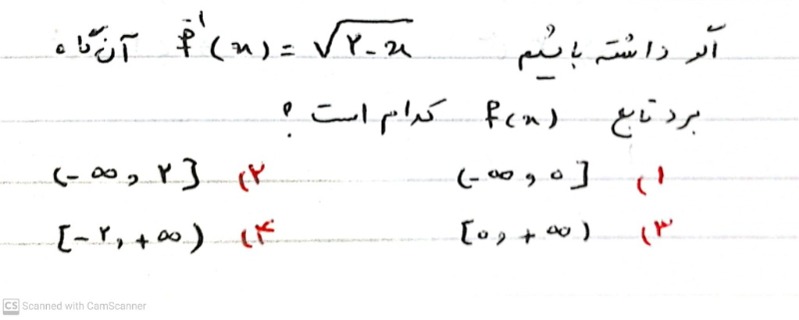 اگر داشته باشیم f⁻¹(x) = √۲-x آن گاه
برد تابع f(x) کدام است؟
۱) (-∞, ۰] ۲) (-∞, ۲]
۳) [۰, +∞) ۴) [-۲, +∞)
CS Scanned with CamScanner